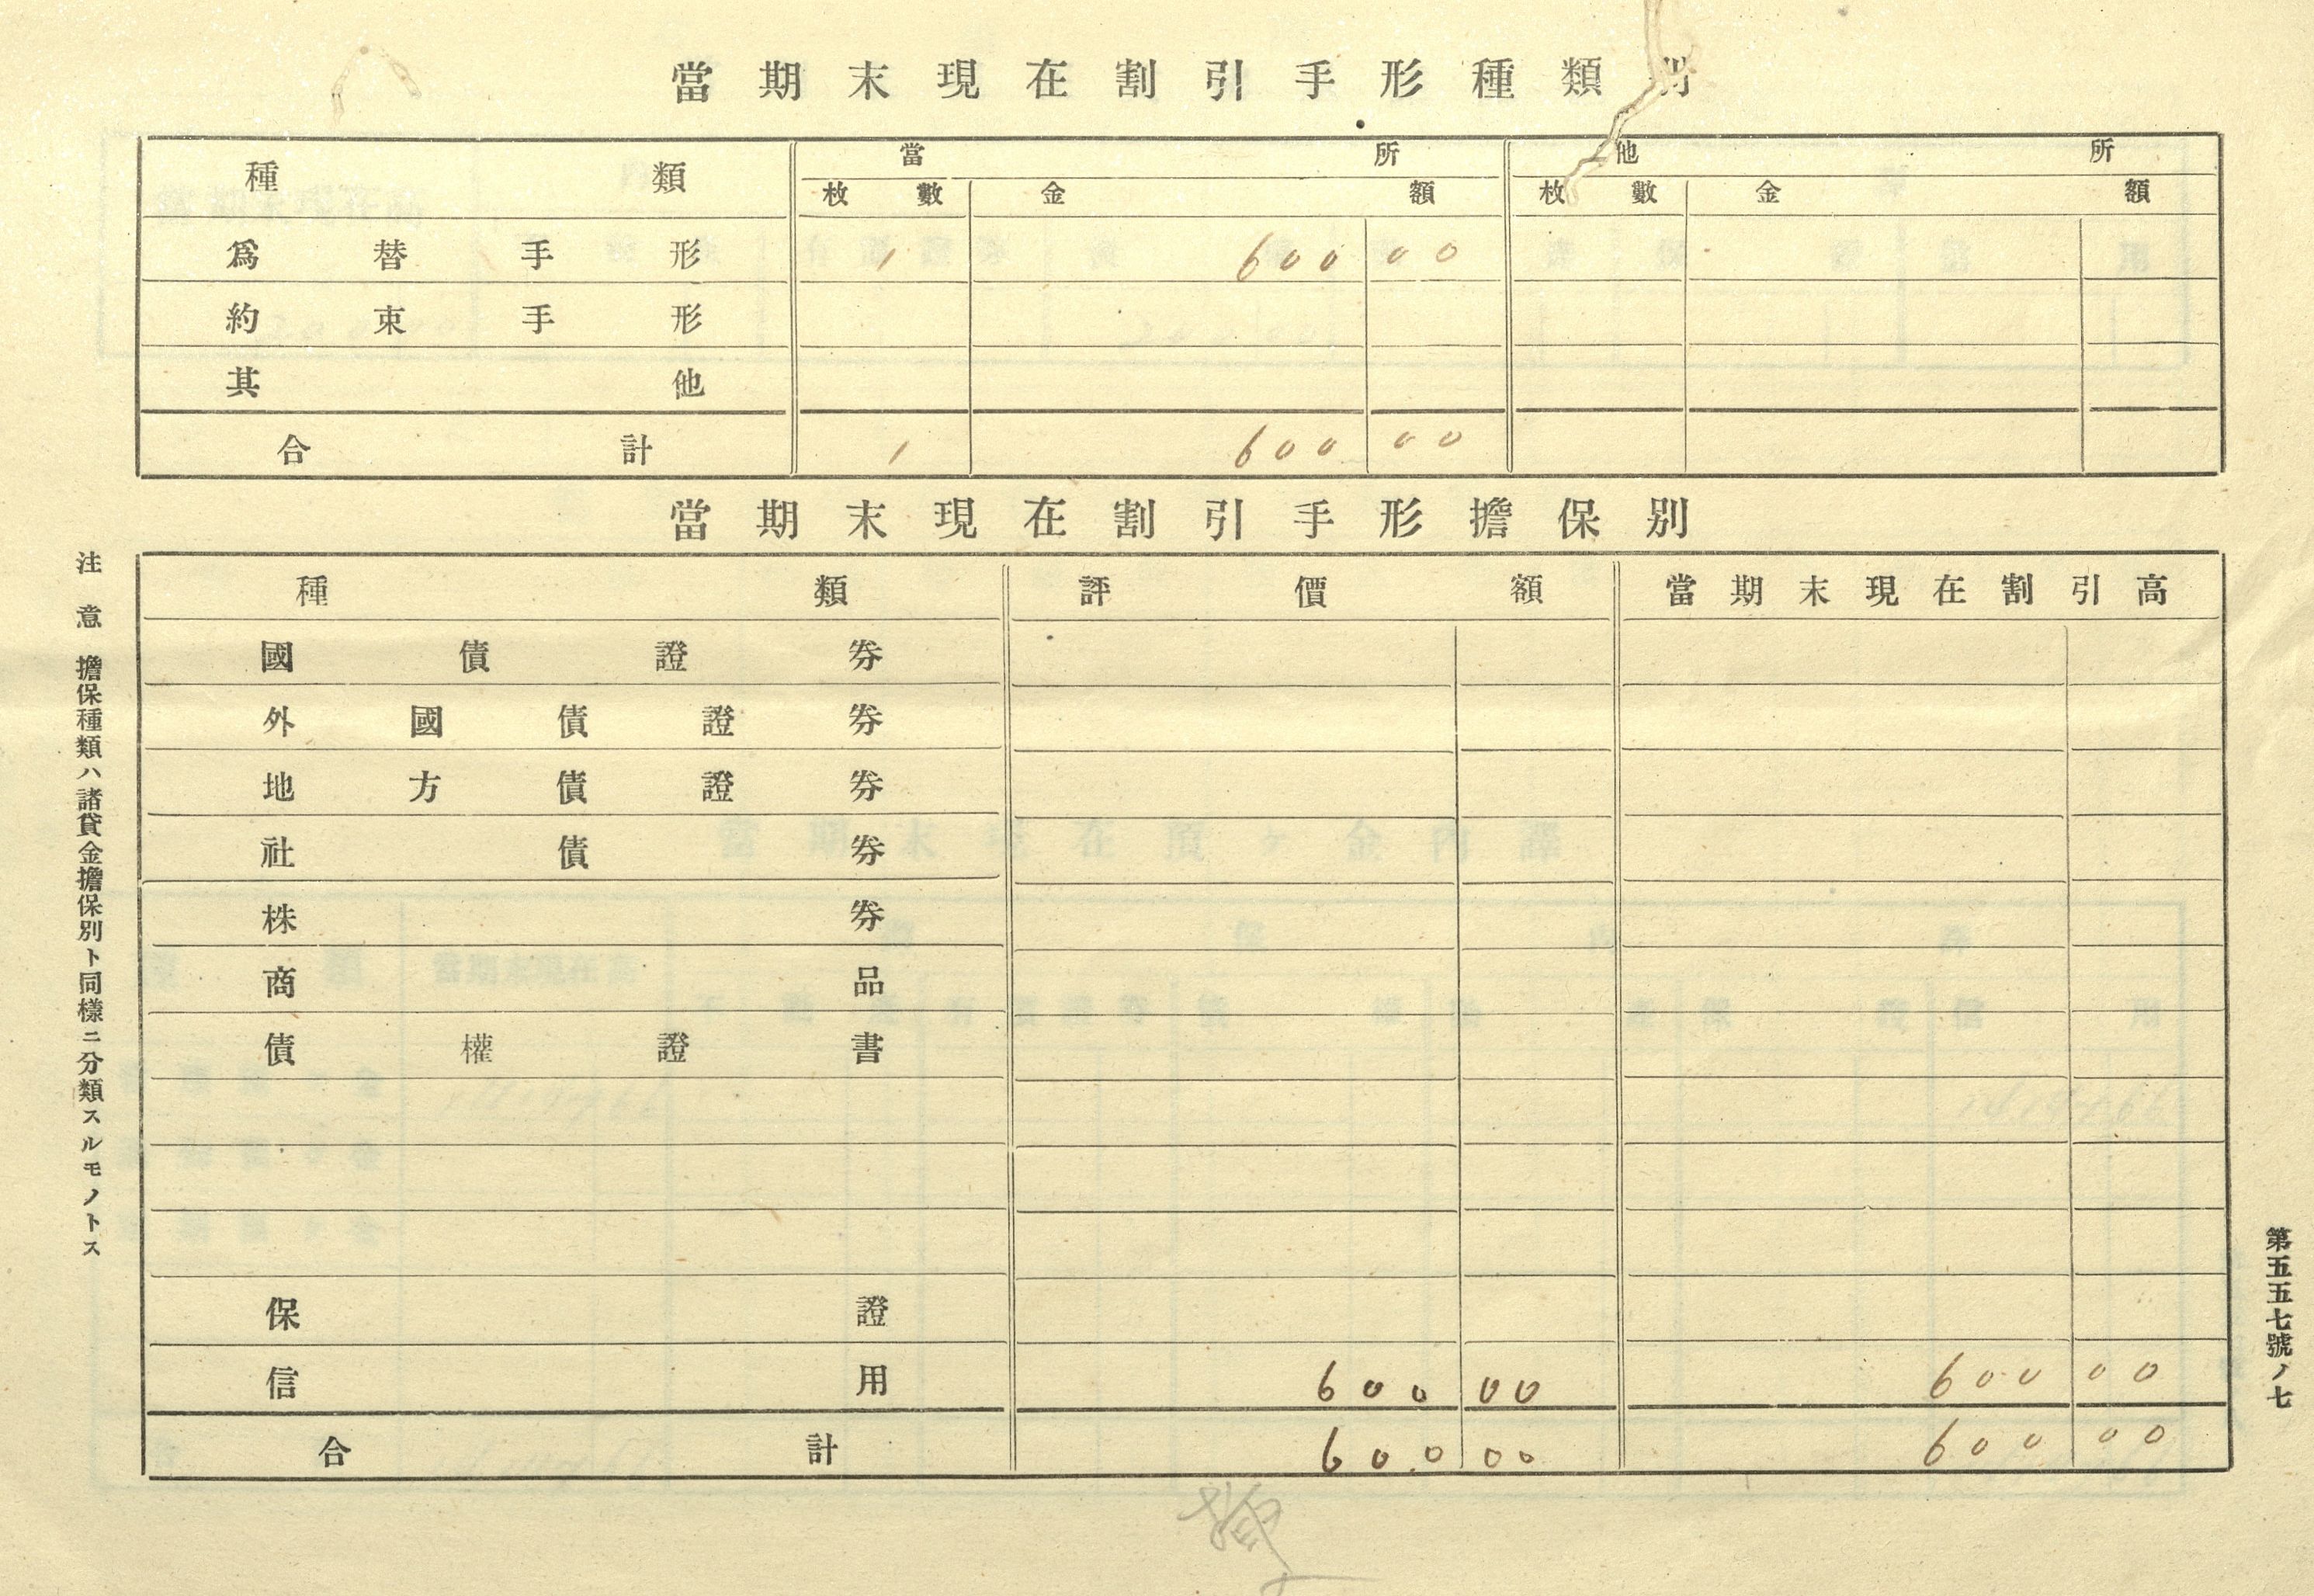 當期末現在割引手形種類別
種類 當所 他所
枚數 金額 枚數 金額
爲替手形 1 600 00
約束手形
其他
合計 1 600 00
當期末現在割引手形擔保別
種類 評價額 當期末現在割引高
國債證券
外國債證券
地方債證券
社債券
株券
商品
債權證書
保證
信用 600 00 600 00
合計 600 00 600 00
注意 擔保種類ハ諸貸金擔保別ト同樣ニ分類スルモノトス
第五五七號ノ七